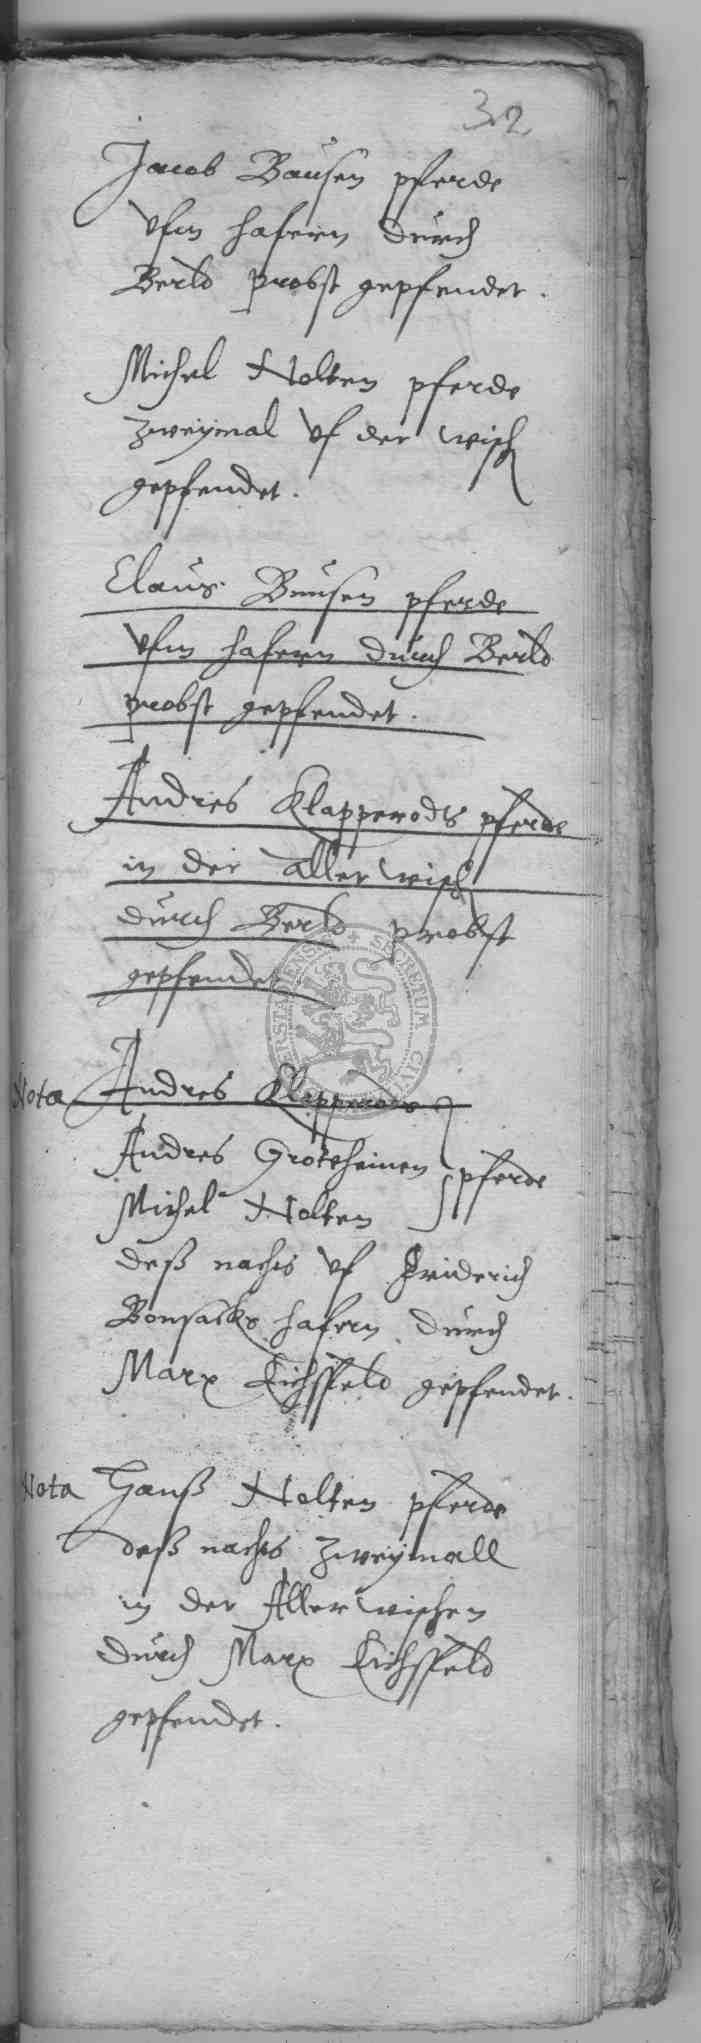 32
Jacob Bausen pferde
vfm hafern durch
Berld Probst gepfendet.
Michel Nolten pferde
zweymal vf der wisch
gepfendet.
Claus Bausen pferde
vfm hafern durch Berld
probst gepfendet.
Andres Klapperodts pferde
in der aller wisch
durch Berld probst
gepfendet
Nota Andres Klapperodts
Andres Grotheinen pferde
Michel Nolten
deß nachts vf Friderich
Bonsacks hafern durch
Marx Eichsfeld gepfendet.
Nota Hanß Nolten pferde
deß nachts zweymall
in der Aller wischen
durch Marx Eichsfeld
gepfendet.
SECRETUM CIVI